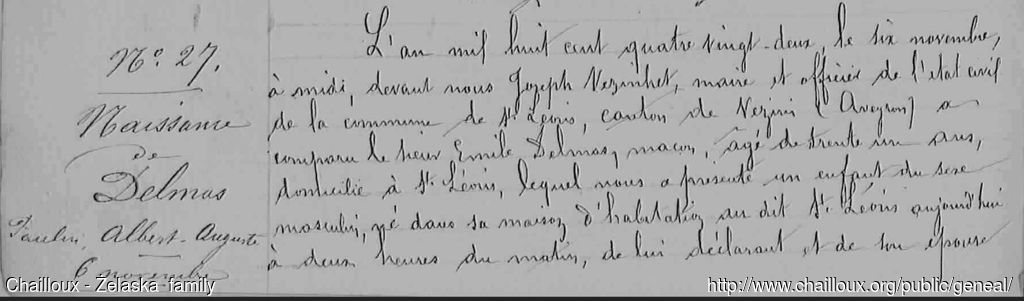 N° 27.
Naissance
de
Delmas
Paulin, Albert-Auguste
6 novembre
L'an mil huit cent quatre vingt-deux, le six novembre,
à midi, devant nous Joseph Vezinhet, maire et officier de l'etat civil
de la commune de St Léons, canton de Vezins (Aveyron) a
comparu le sieur Emile Delmas, maçon, âgé de trente un ans,
domicilié à St Léons, lequel nous a présenté un enfant du sexe
masculin, né dans sa maison d'habitation au dit St Léons aujourd'hui
à deux heures du matin, de lui déclarant et de son épouse
Chailloux - Zelaska family
http://www.chailloux.org/public/geneal/